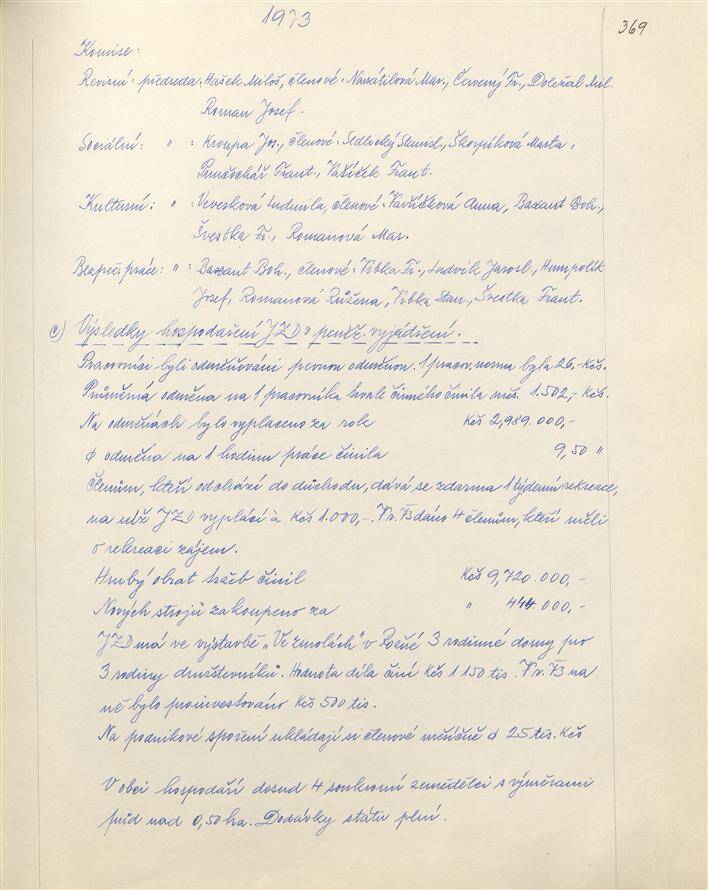 1973
369
Komise:
Revisní: předseda: Hašek Miloš, členové: Navrátilová Mar., Červený Fr., Doležal Mil.
Roman Josef.
Sociální: " : Kroupa Jos., členové: Sedlický Stanisl., Škorpíková Marta,
Punčochář Frant., Vašíček Frant.
Kulturní: " : Veverková Ludmila, členové: Vavříčková Anna, Baxant Boh.,
Švestka Fr., Romanová Mar.
Bezpeč. práce: " : Baxant Boh., členové: Vrbka Fr., Ludvík Jarosl., Humpolík
Josef, Romanová Růžena, Vrbka Stan., Švestka Frant.
c) Výsledky hospodaření JZD v peněž. vyjádření.
Pracovníci byli odměňováni pevnou odměnou. 1 pracov. norma byla 26,- Kčs.
Průměrná odměna na 1 pracovníka trvale činného činila měs. 1.502,- Kčs.
Na odměnách bylo vyplaceno za rok Kčs 2,989.000,-
ϕ odměna na 1 hodinu práce činila 9,50 "
Členům, kteří odchází do důchodu, dává se zdarma 1 týdenní rekreace,
na níž JZD vyplácí à Kčs 1.000,-. V r. 73 dáno 4 členům, kteří měli
o rekreaci zájem.
Hrubý obrat tržeb činil Kčs 9,720.000,-
Nových strojů zakoupeno za " 444.000,-
JZD má ve výstavbě „Ve zmolách" v 3 rodinné domy pro
3 rodiny družstevníků. Hodnota díla činí Kčs 1 150 tis. V r. 73 na
ně bylo proinvestováno Kčs 500 tis.
Na podnikové spoření ukládají si členové měsíčně 25 tis. Kčs
V obci hospodaří dosud 4 soukromí zemědělci s výměrami
půd nad 0,50 ha. Dodávky státu plní.